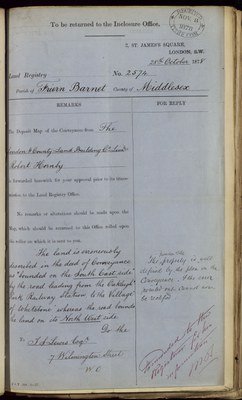 To be returned to the Inclosure Office.
3, ST. JAMES'S SQUARE,
LONDON, S.W.
28th October 1878
Land Registry
No. 2374
Parish of Friern Barnet County of Middlesex
REMARKS
FOR REPLY
The Deposit Map of the Conveyance from The
London & County Land & Building Co. Limd to
Robert Hornby
is forwarded herewith for your approval prior to its transmission
to the Land Registry Office.
No remarks or alterations should be made upon the
Map, which should be returned to this Office within seven
days on which it is sent to you.
The land is erroneously
described in the deed of Conveyance
as "bounded on the South East side
by the road leading from the Oakleigh
Park Railway Station to the Village
of Whetstone whereas the road bounds
the land on its North West side.
To
7 Wilmington Street
W.C.
The property is well
defined by the plan on the
Conveyance. If the error